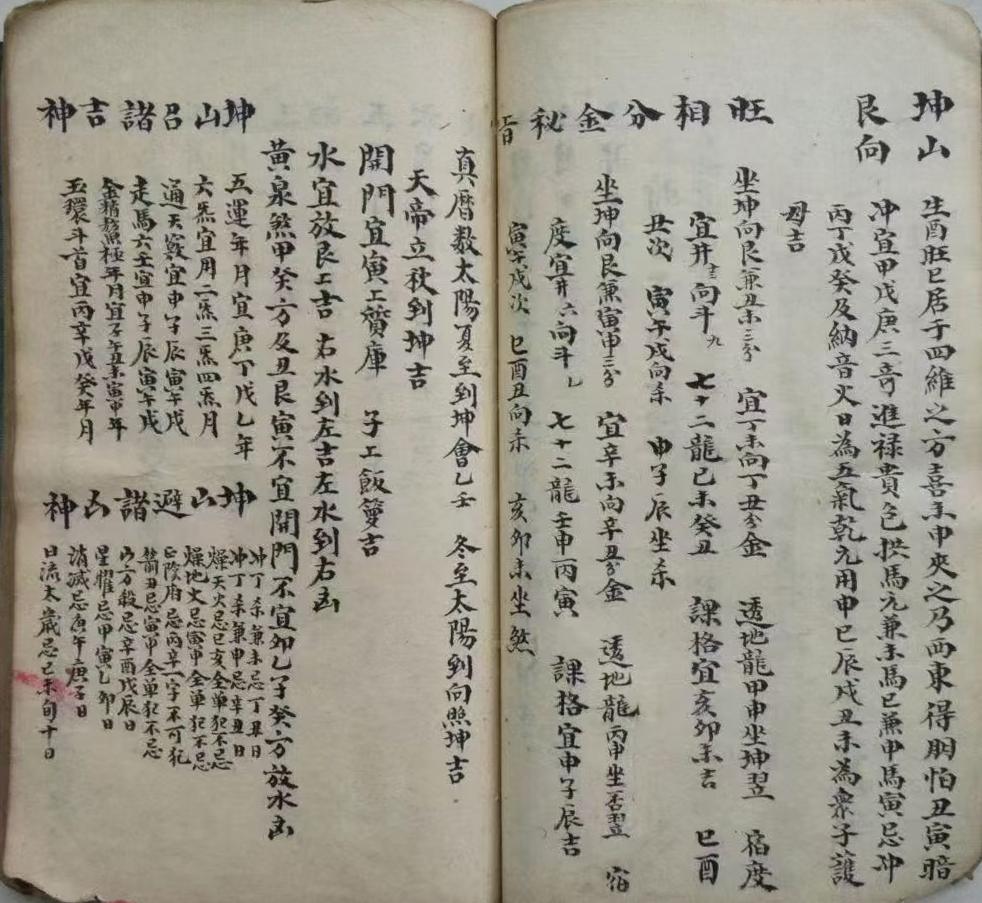 坤山
艮向
生酉旺巳居于四維之方喜未申夾之乃西東得朋怕丑寅暗
冲宜甲戊庚三奇進禄貴包拱馬尤兼未馬巳兼申馬寅忌冲
丙丁戊癸及納音火日為五氣乾元用申巳辰戌丑未為衆子護
母吉
旺相分金秘旨
坐坤向艮兼丑未三分 宜丁未向丁丑分金 透地龍甲申坐坤翌 宿度
宜井 向斗九 七十二龍己未癸丑 課格宜亥卯未吉 巳酉
丑次 寅午戌向杀 申子辰坐杀
坐坤向艮兼寅申三分 宜辛未向辛丑分金 透地龍丙申坐 翌 宿
度宜井六向斗七 七十二龍壬申丙寅 課格宜申子辰吉
寅午戌次 巳酉丑向杀 亥卯未坐煞
真曆数太陽夏至到坤會乙壬 冬至太陽到向照坤吉
天帝立秋到坤吉
開門宜寅工 庫 子工飯籮吉
水宜放艮工吉 右水到左吉左水到右凶
黄泉煞甲癸方及丑艮寅不宜開門不宜卯乙子癸方放水凶
坤山呂諸吉神
五運年月宜庚丁戊乙年
六炁宜用二炁三炁四炁月
通天竅宜申子辰寅午戌
走馬六壬宜申子辰寅午戌
金精鰲極年月宜子午丑未寅申年
玉環斗首宜丙辛戊癸年月
坤山避諸凶神
冲丁杀兼未忌丁丑日
冲丁杀兼申忌辛丑日
燥天火忌巳亥全單犯不忌
燥地火忌寅申全單犯不忌
正陰府忌丙辛二字不可犯
箭丑忌寅申全單犯不忌
山方殺忌辛酉戊辰日
星曜忌甲寅乙卯日
消滅忌庚午庚子日
日流太歲忌己未旬十日